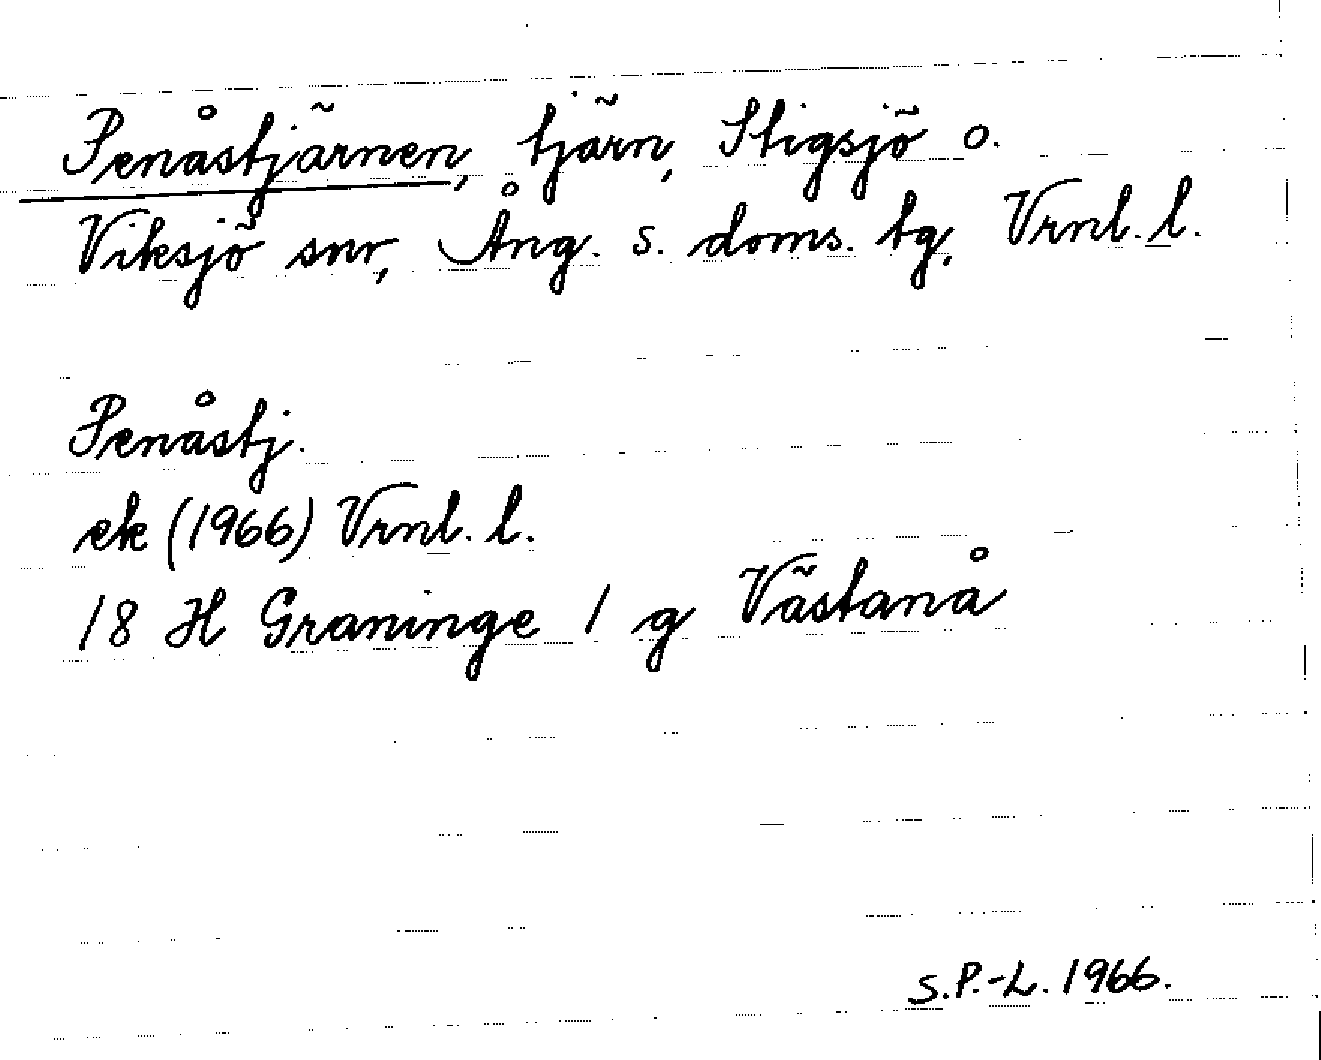 Penåstjärnen, tjärn, Stigsjö o.
Viksjö snr, Ång. s. doms. tg, Vrnl. l.
Penåstj.
ek (1966) Vrnl. l.
18 H Graninge 1 g Västanå
S.P.-L. 1966.